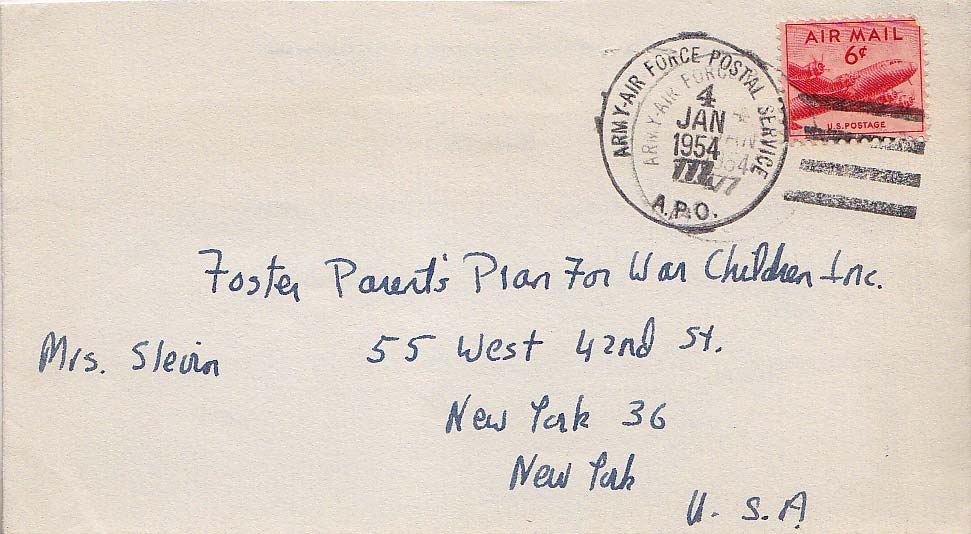 AIR MAIL
6¢
U.S. POSTAGE
ARMY-AIR FORCE POSTAL SERVICE
4
JAN
1954
A.P.O.
Foster Parent's Plan For War Children Inc.
Mrs. Slevin 55 West 42nd St.
New York 36
New York
U. S. A